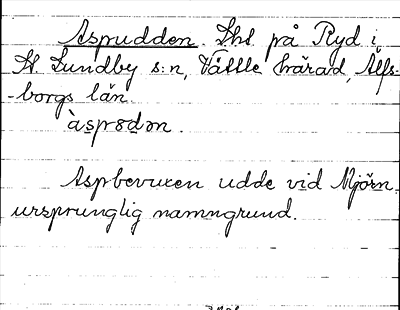 Aspudden. Lht på Ryd i
St. Lundby s:n, Vättle härad, Älfs-
-borgs län.
àspr8dən.
Aspbevuxen udde vid Mjörn,
ursprunglig namngrund.